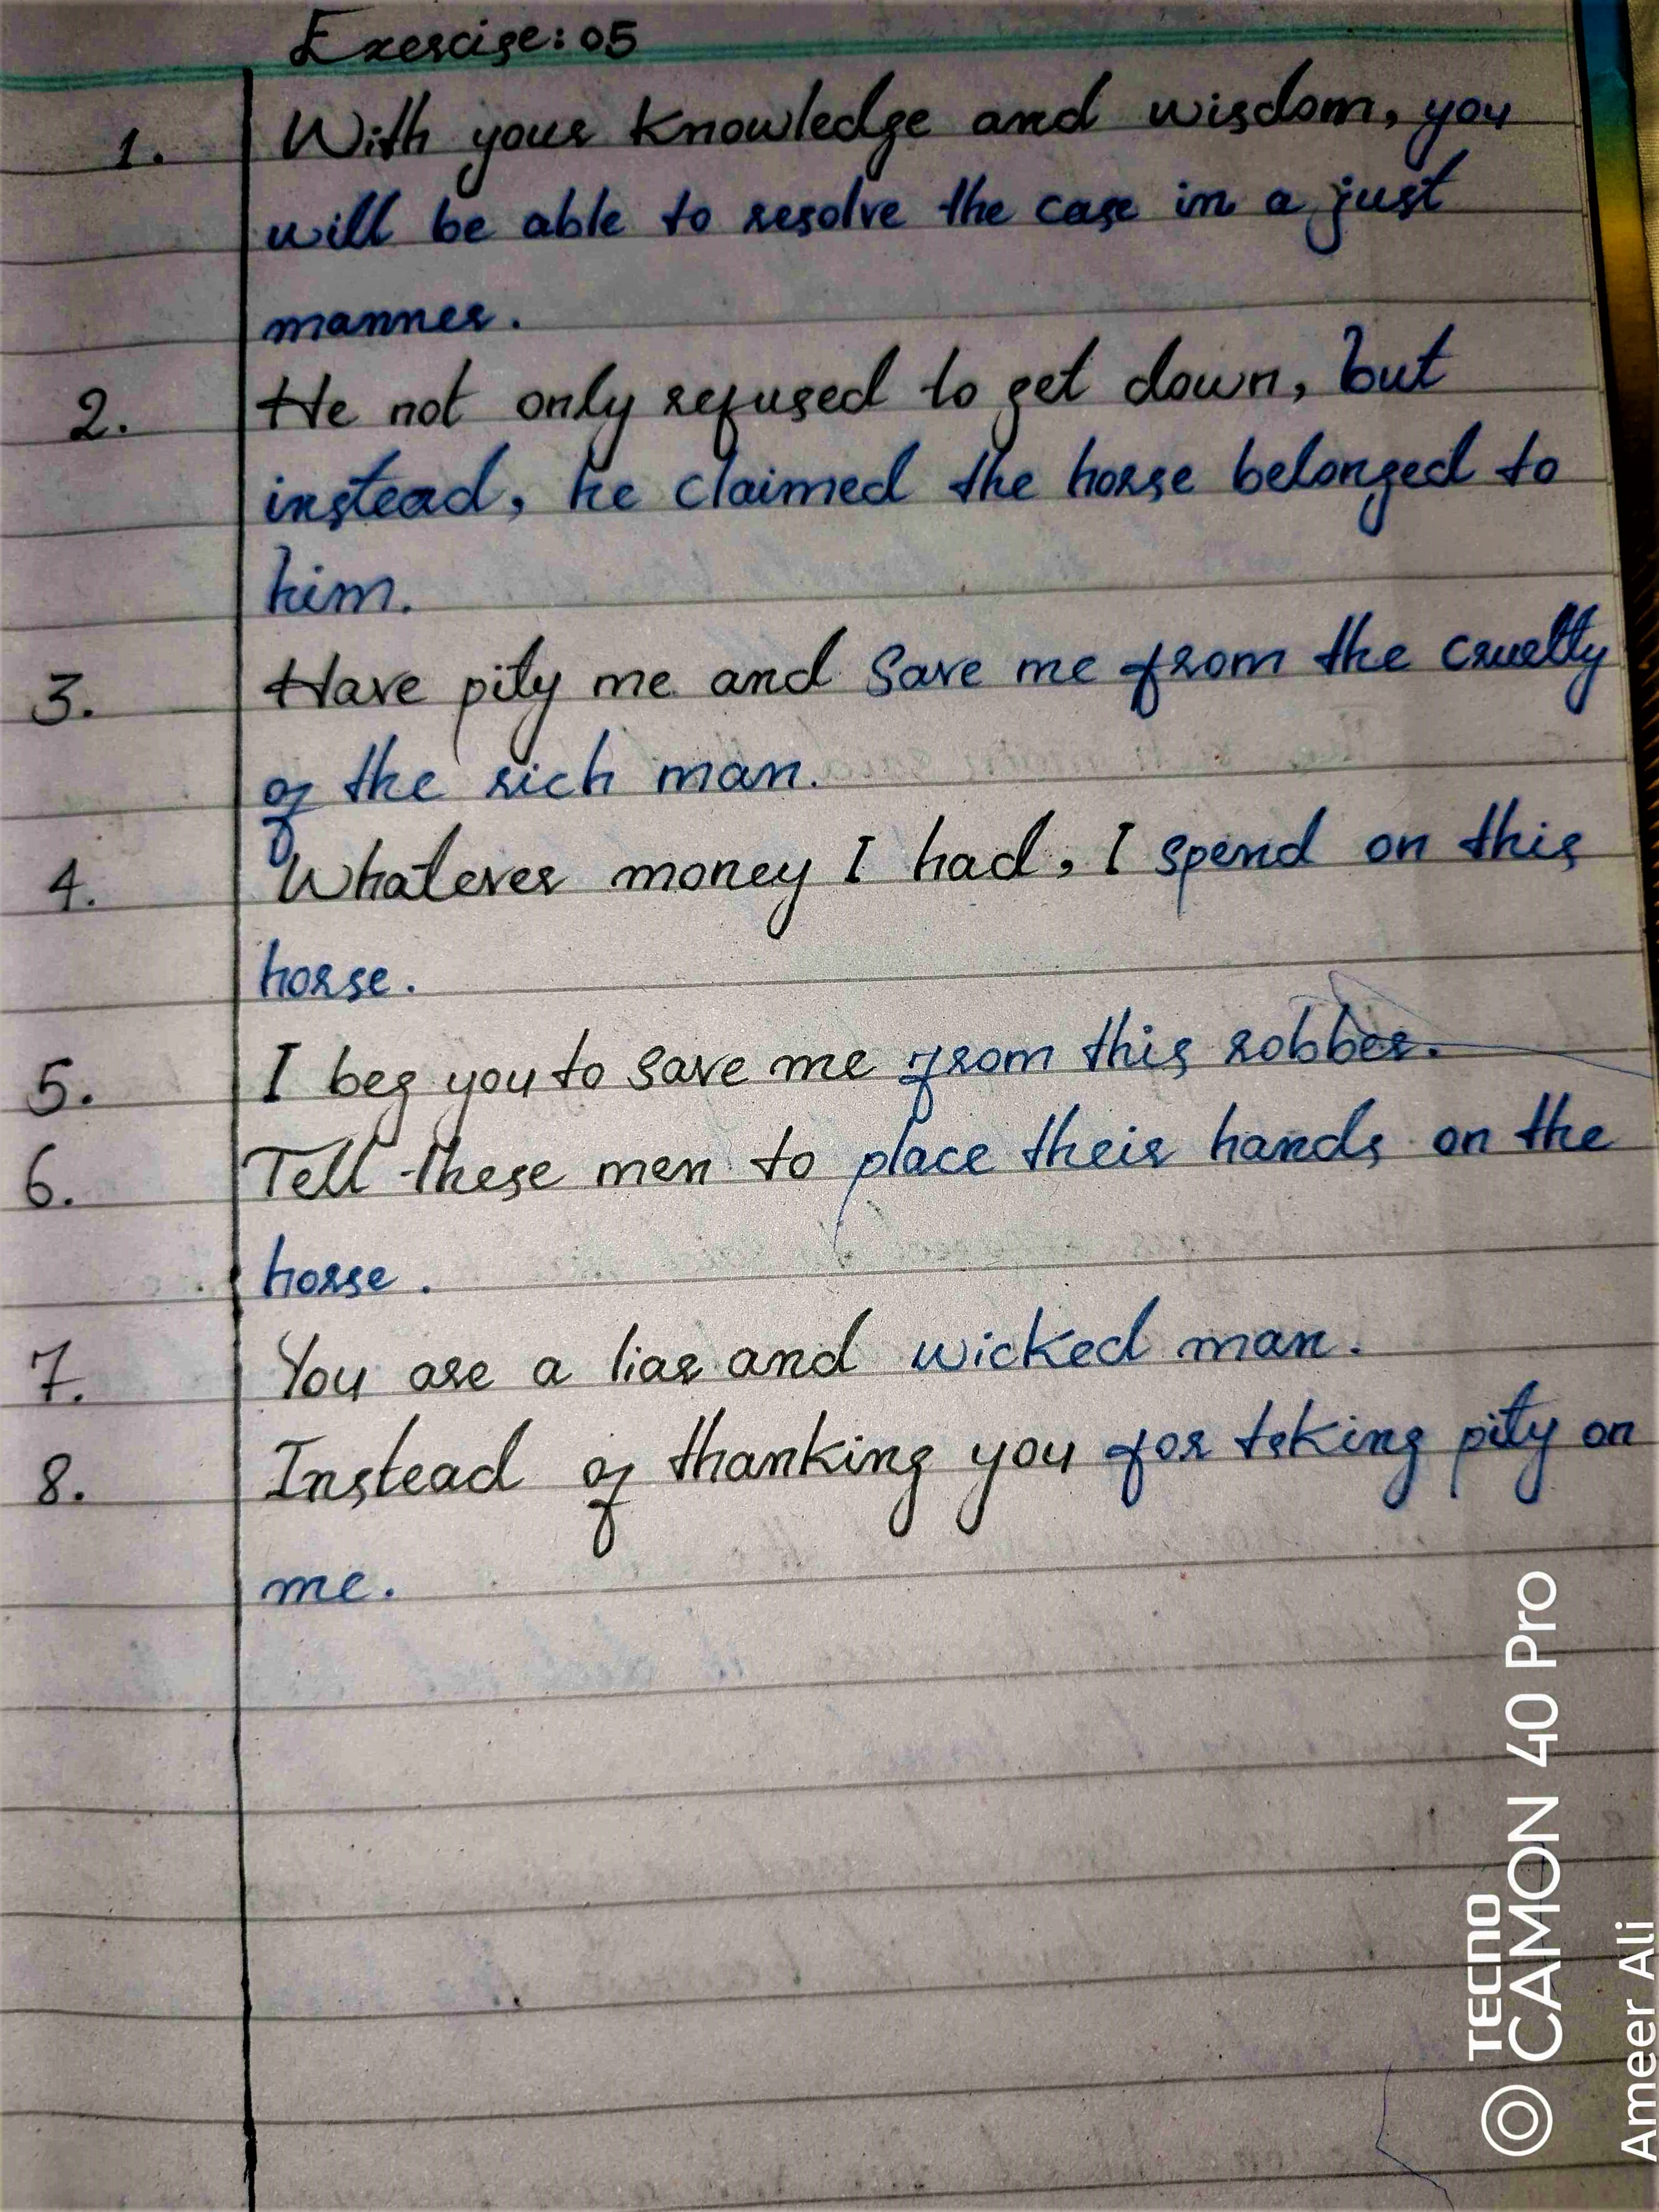 Exercise: 05
1. With your knowledge and wisdom, you
will be able to resolve the case in a just
manner.
2. He not only refused to get down, but
instead, he claimed the horse belonged to
him.
3. Have pity me and save me from the cruelty
of the rich man.
4. Whatever money I had, I spend on this
horse.
5. I beg you to save me from this robber.
6. Tell these men to place their hands on the
horse.
7. You are a liar and wicked man.
8. Instead of thanking you for teking pity on
me.
TECNO
CAMON 40 Pro
Ameer Ali